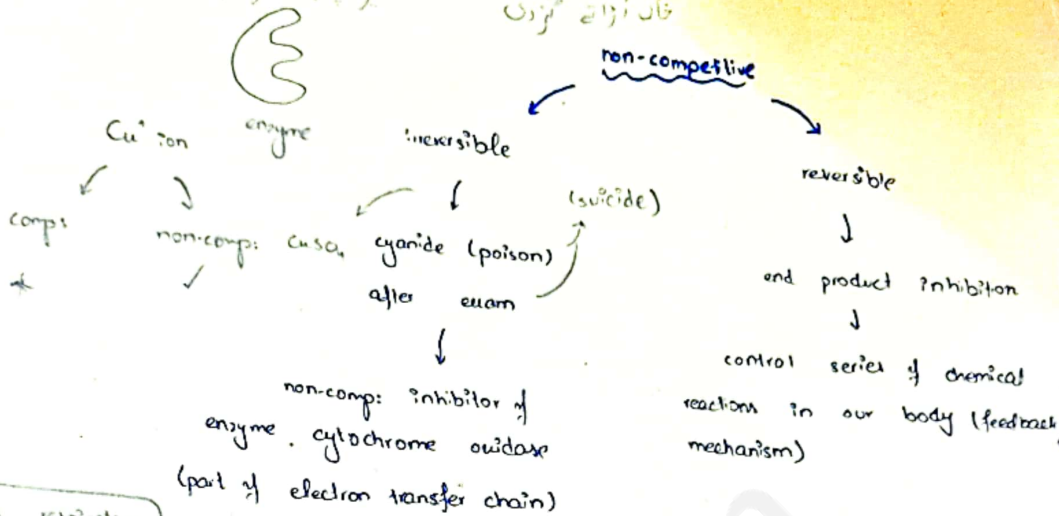 non-competive
Cu⁺ ion
enzyme
irreversible
reversible
comp:
non-comp: CuSO₄
cyanide (poison)
(suicide)
after exam
end product inhibition
non-comp: inhibitor of
enzyme. cytochrome oxidase
(part of electron transfer chain)
control series of chemical
reactions in our body (feedback
mechanism)